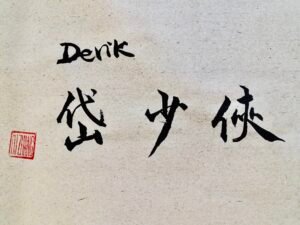 Derik
岱少俠